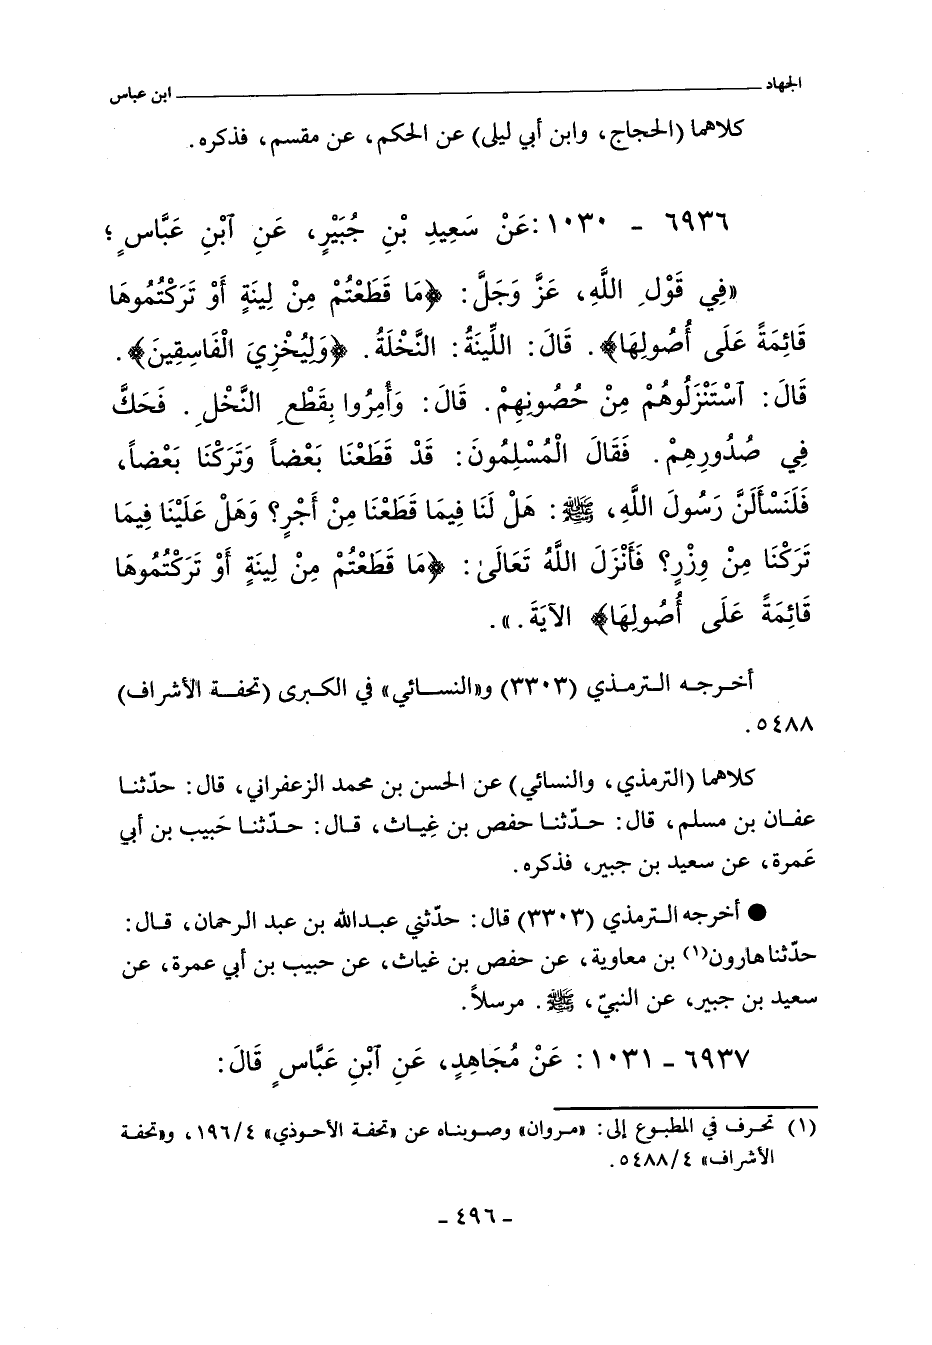 الجهاد ــــــــــــــــــــــــــــــــ ابن عباس
كلاهما (الحجاج، وابن أبي ليلى) عن الحكم، عن مقسم، فذكره.
٦٩٣٦ - ١٠٣٠: عَنْ سَعِيدِ بْنِ جُبَيْرٍ، عَنِ ٱبْنِ عَبَّاسٍ؛
«فِي قَوْلِ اللَّهِ، عَزَّ وَجَلَّ: ﴿مَا قَطَعْتُمْ مِنْ لِينَةٍ أَوْ تَرَكْتُمُوهَا
قَائِمَةً عَلَى أُصُولِهَا﴾. قَالَ: اللِّينَةُ: النَّخْلَةُ. ﴿وَلِيُخْزِيَ الْفَاسِقِينَ﴾.
قَالَ: ٱسْتَنْزَلُوهُمْ مِنْ حُصُونِهِمْ. قَالَ: وَأُمِرُوا بِقَطْعِ النَّخْلِ. فَحَكَّ
فِي صُدُورِهِمْ. فَقَالَ الْمُسْلِمُونَ: قَدْ قَطَعْنَا بَعْضاً وَتَرَكْنَا بَعْضاً،
فَلَنَسْأَلَنَّ رَسُولَ اللَّهِ، ﷺ: هَلْ لَنَا فِيمَا قَطَعْنَا مِنْ أَجْرٍ؟ وَهَلْ عَلَيْنَا فِيمَا
تَرَكْنَا مِنْ وِزْرٍ؟ فَأَنْزَلَ اللَّهُ تَعَالَىٰ: ﴿مَا قَطَعْتُمْ مِنْ لِينَةٍ أَوْ تَرَكْتُمُوهَا
قَائِمَةً عَلَى أُصُولِهَا﴾ الآيَةَ.».
أخرجه الترمذي (٣٣٠٣) و«النسائي» في الكبرى (تحفة الأشراف)
٥٤٨٨.
كلاهما (الترمذي، والنسائي) عن الحسن بن محمد الزعفراني، قال: حدّثنا
عفان بن مسلم، قال: حدّثنا حفص بن غِياث، قال: حدّثنا حَبيب بن أبي
عَمرة، عن سعيد بن جبير، فذكره.
● أخرجه الترمذي (٣٣٠٣) قال: حدّثني عبدالله بن عبد الرحمان، قال:
حدّثنا هارون(١) بن معاوية، عن حفص بن غياث، عن حبيب بن أبي عمرة، عن
سعيد بن جبير، عن النبيّ، ﷺ. مرسلاً.
٦٩٣٧ - ١٠٣١: عَنْ مُجَاهِدٍ، عَنِ ٱبْنِ عَبَّاسٍ قَالَ:
(١) تحرف في المطبوع إلى: «مروان» وصوبناه عن «تحفة الأحوذي» ١٩٦/٤، و«تحفة
الأشراف» ٥٤٨٨/٤.
- ٤٩٦ -